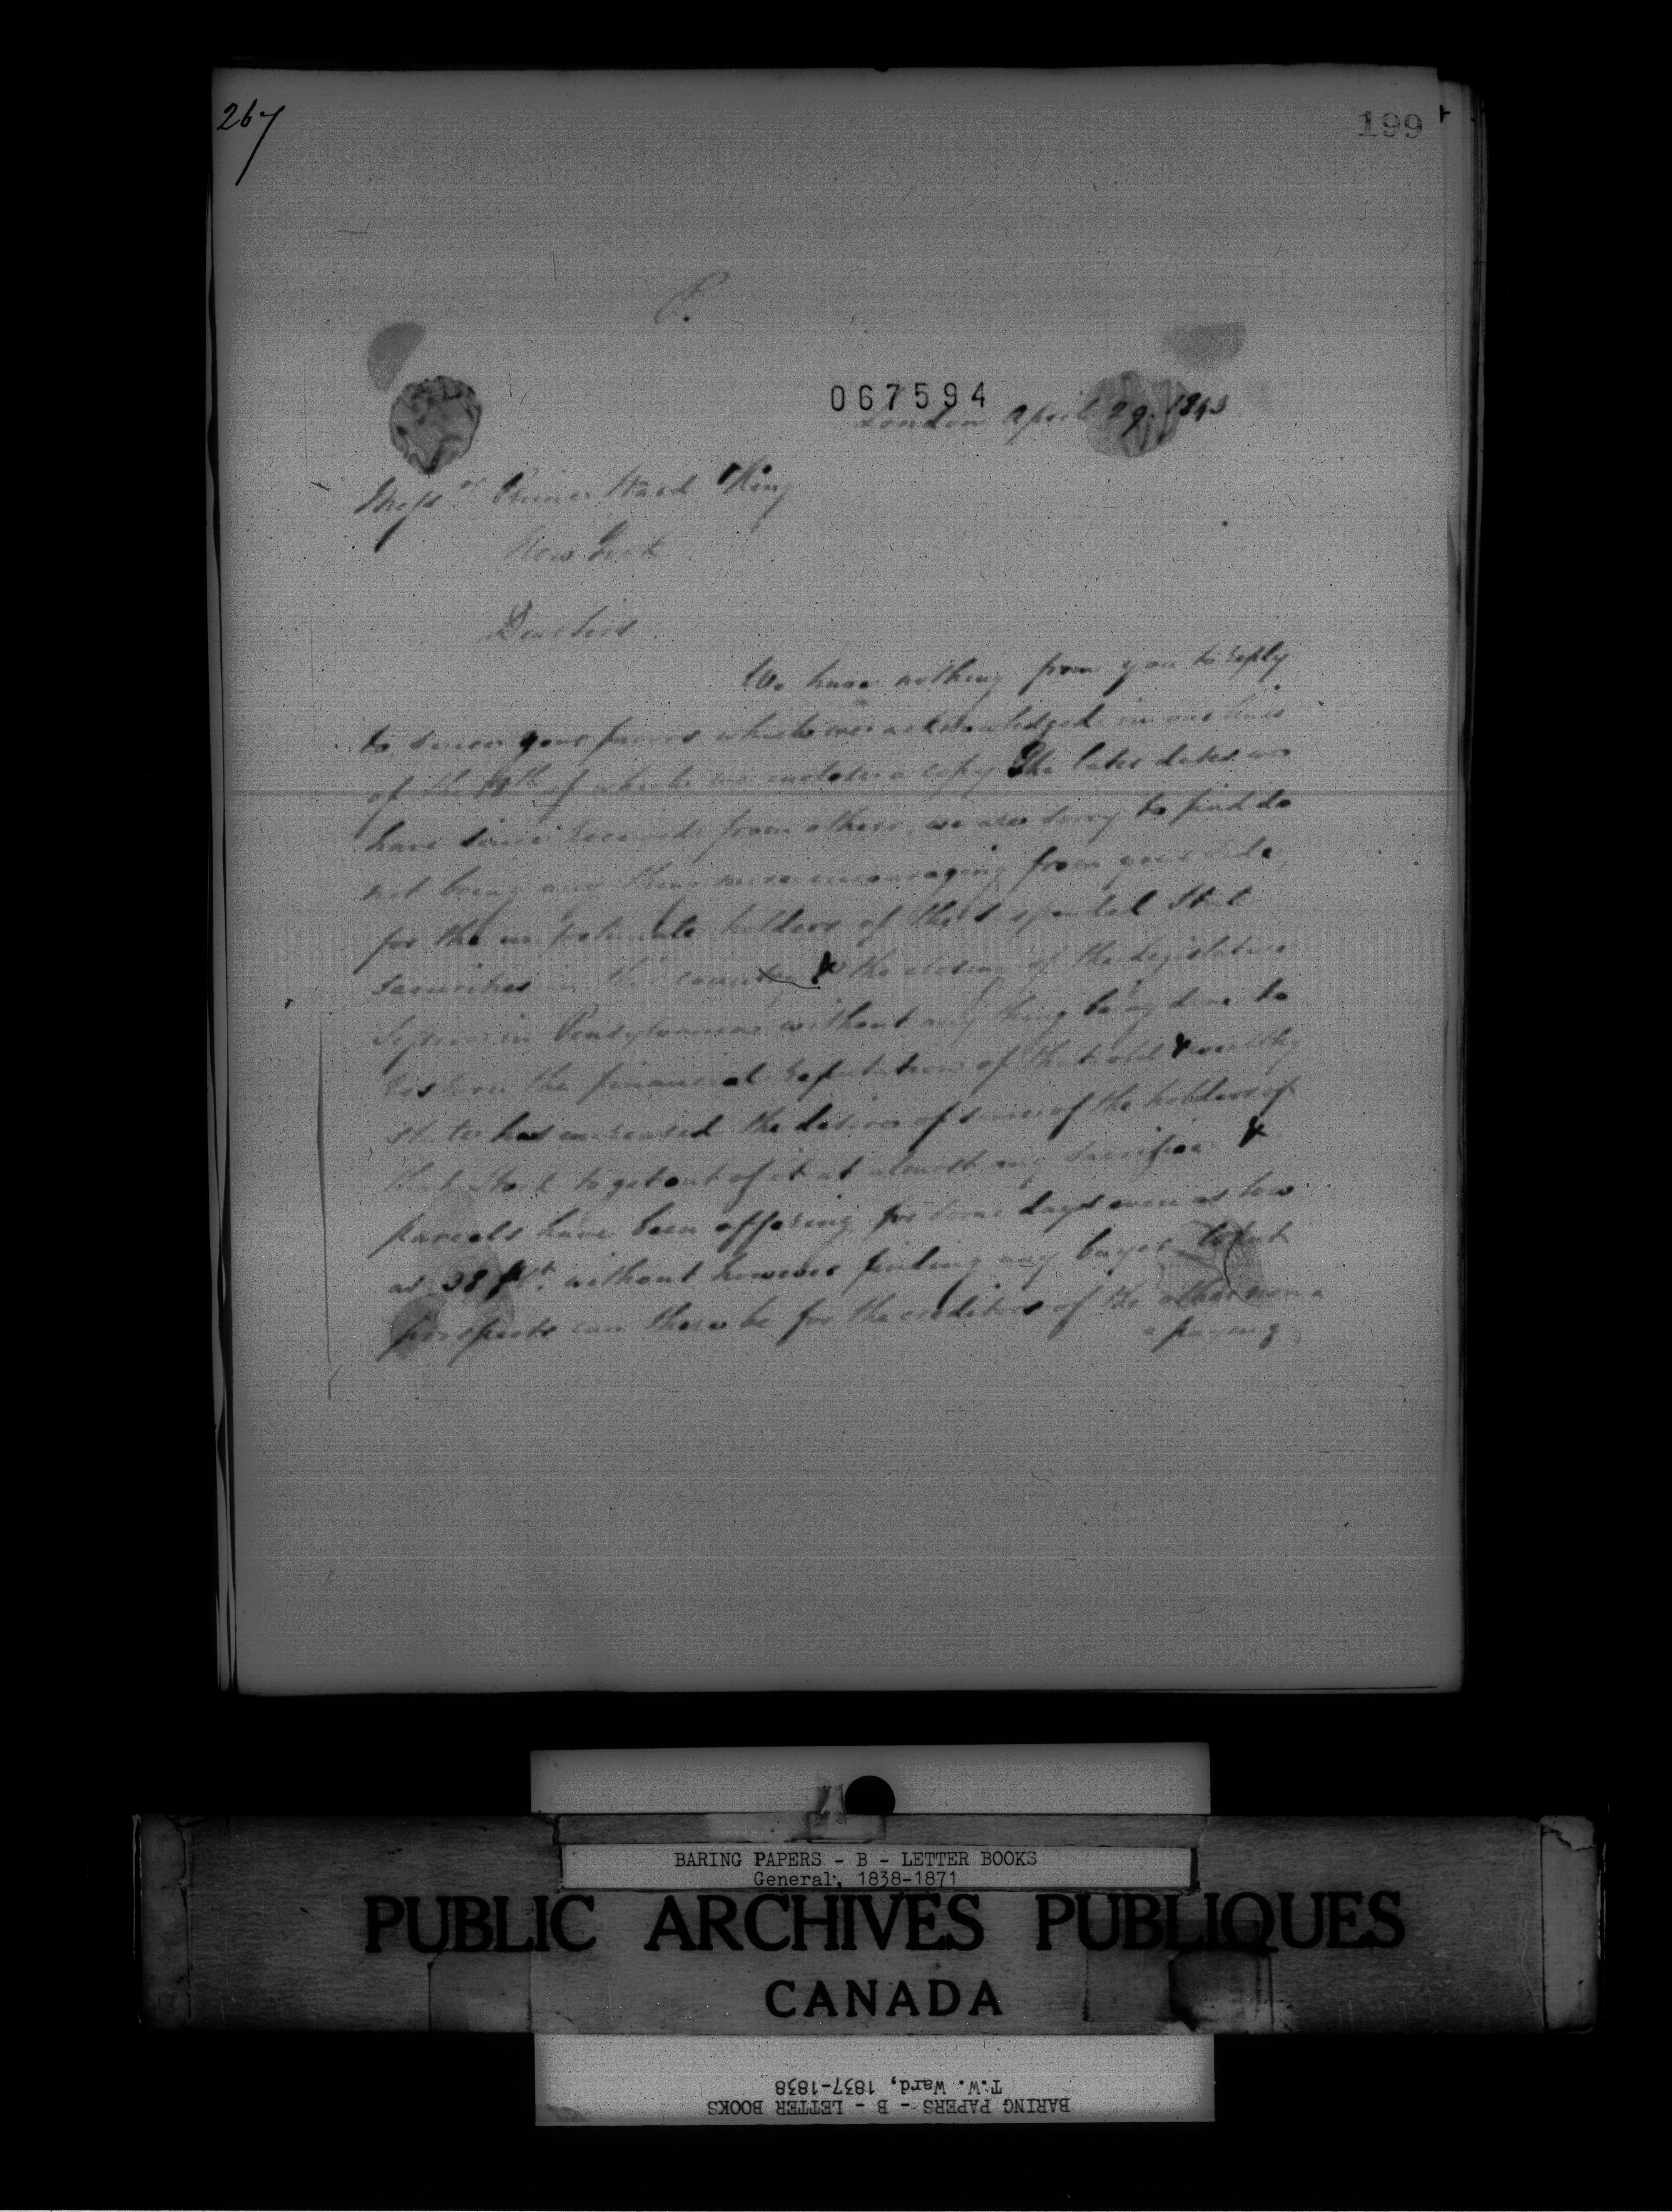 267
199
P.
067594
London April 29. 1843
Mess.rs Prime Ward & King
New York
Dear Sirs.
We have nothing from you to reply
to, since your favors which we acknowledged in our lines
of the 18th of which we enclose a copy. The later dates we
have since received from others, we are sorry to find do
not bring any thing more encouraging from your side,
for the unfortunate holders of the suspended State
securities in this country & the closing of the Legislative
Session in Pensylvania without any thing being done to
restore the financial reputation of that old & wealthy
state has increased the desire of some of the holders of
that Stock to get out of it at almost any sacrifice &
parcels have been offering for some days even as low
as 38 without however finding any buyer What
prospects can there be for the creditors of the other non =
= paying
BARING PAPERS - B - LETTER BOOKS
General, 1838-1871
PUBLIC ARCHIVES PUBLIQUES
CANADA
BARING PAPERS - B - LETTER BOOKS
T.W. Ward, 1837-1838